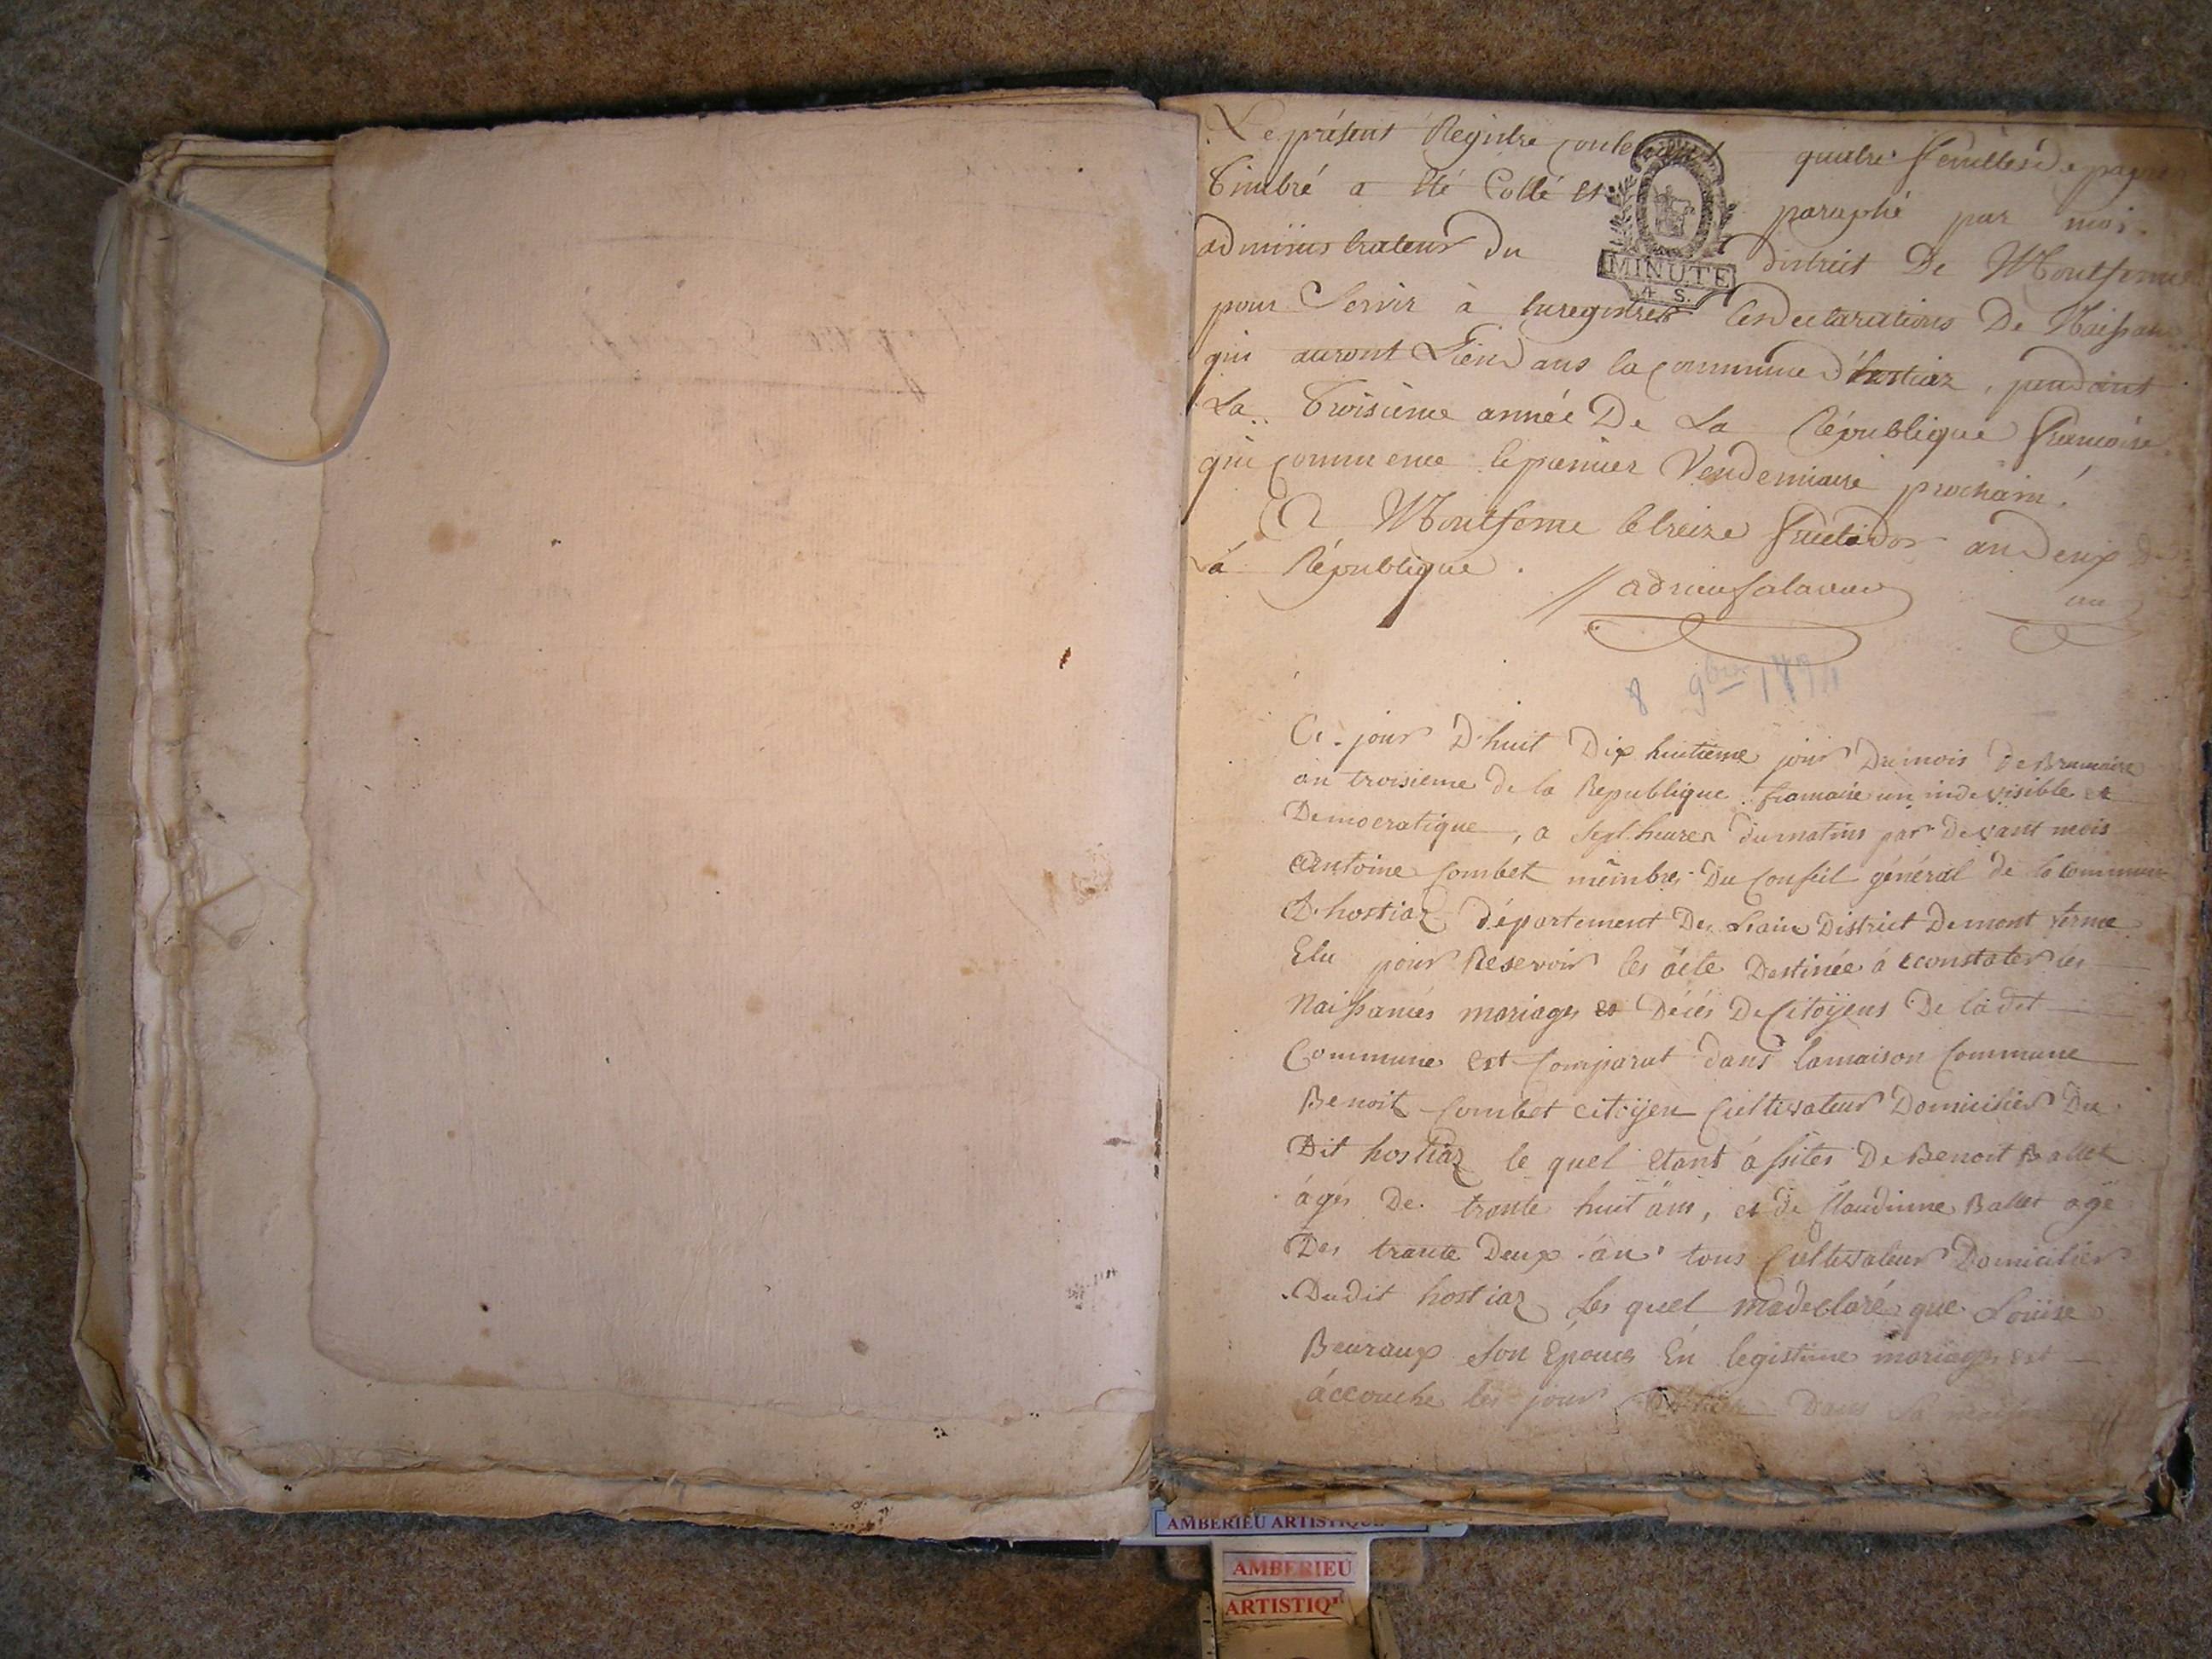 Le présent Registre contenant quatre feuilles de papier
Timbré a été Collé et paraphé par moi
administrateur du district De Montferme
MINUTE
4 S.
pour Servir à Enregistrer les declarations De Naissance
qui auront Lieu dans la commune d'hostiaz, pendant
La Troisieme année De La République francoise
qui commence le premier Vendemiaire prochain.
A Montferme le treize fructidor an deux de
la République.
8 9bre 1794
Ce jour D'huit Dix huitieme jour Du mois De Brumaire
an troisieme de la Republique francaise un indevisible et
Democratique, a sept heures du matins par devant mois
Antoine Combet membre Du Conseil général de la commune
D'hostiaz département De Lain District De mont ferme
Elu pour Resevoir les acte Destinée á constater les
Naissances mariages et Décés De Citoÿens De la dit
Commune est Comparut dans la maison Commune
Benoit Combet citoÿen Cultivateur Domicilier Du
Dit hostiaz le quel etant ássites De Benoit Ballet
ágés De trante huit ans, et de Claudinne Ballet agé
Des trante Deux an tous Cultivateur Domicilier
Dudit hostiaz les quel ma declaré que Louise
Beuraux son Epouse En legistime mariages est
áccouche les jour Dans sa maison
AMBERIEU ARTISTIQUE
AMBERIEU
ARTISTIQ